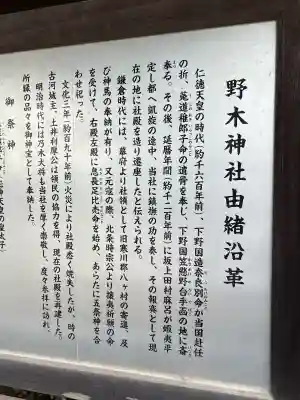 野木神社由緒沿革
仁徳天皇の時代(約千六百年前)下野国造奈良別命が当国赴任
の折、莵道稚郎子命の遺骨を奉じ、下野国笠懸野台手函の地に斎
奉る。その後、延暦年間(約千二百年前)に坂上田村麻呂が蝦夷平
定し都へ凱旋の途中、当社に鎮撫の功を奏し、その報賽として現
在の地に社殿を造り遷座したと伝えられる。
鎌倉時代には、幕府より社領として旧寒川郡八ヶ村の寄進、及
び神馬の奉納が有り、又元寇の際、北条時宗公より攘夷祈願の命
を受けて、右殿左殿に息長足比売命を始め、あらたに五祭神を合
わせ祀った。
文化三年(約百九十年前)火災により社殿悉く焼失したが、時の
古河城主、土井利厚公は領民の協力を得、現在の社殿を再建した。
明治時代には乃木大将も当社を厚く崇敬し、度々参拝に訪れ、
所縁の品々を御神宝として奉納した。
御祭神